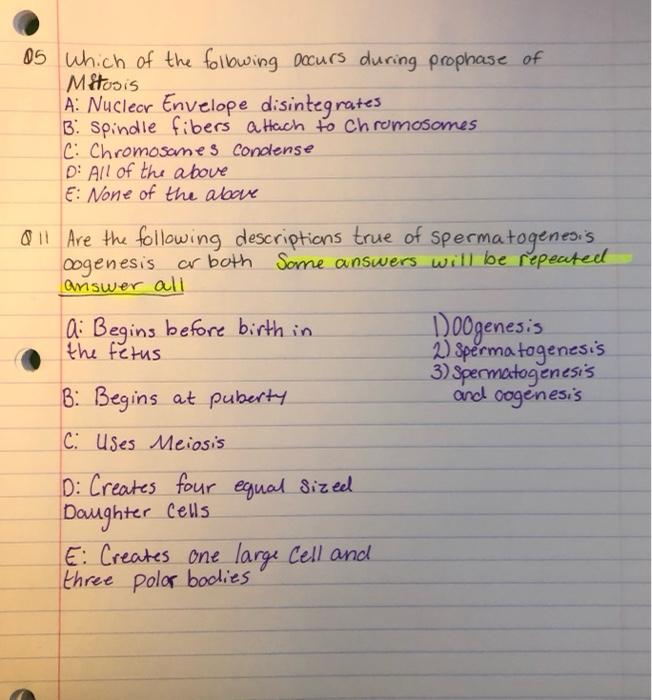 Q5 Which of the following occurs during prophase of
Mitosis
A: Nuclear Envelope disintegrates
B: Spindle fibers attach to Chromosomes
C: Chromosomes Condense
D: All of the above
E: None of the above
Q11 Are the following descriptions true of spermatogenesis
oogenesis or both Some answers will be repeated
answer all
a: Begins before birth in
the fetus
B: Begins at puberty
C: Uses Meiosis
D: Creates four equal sized
Daughter Cells
E: Creates one large Cell and
three polar bodies
1) OOgenesis
2) Spermatogenesis
3) Spermatogenesis
and oogenesis